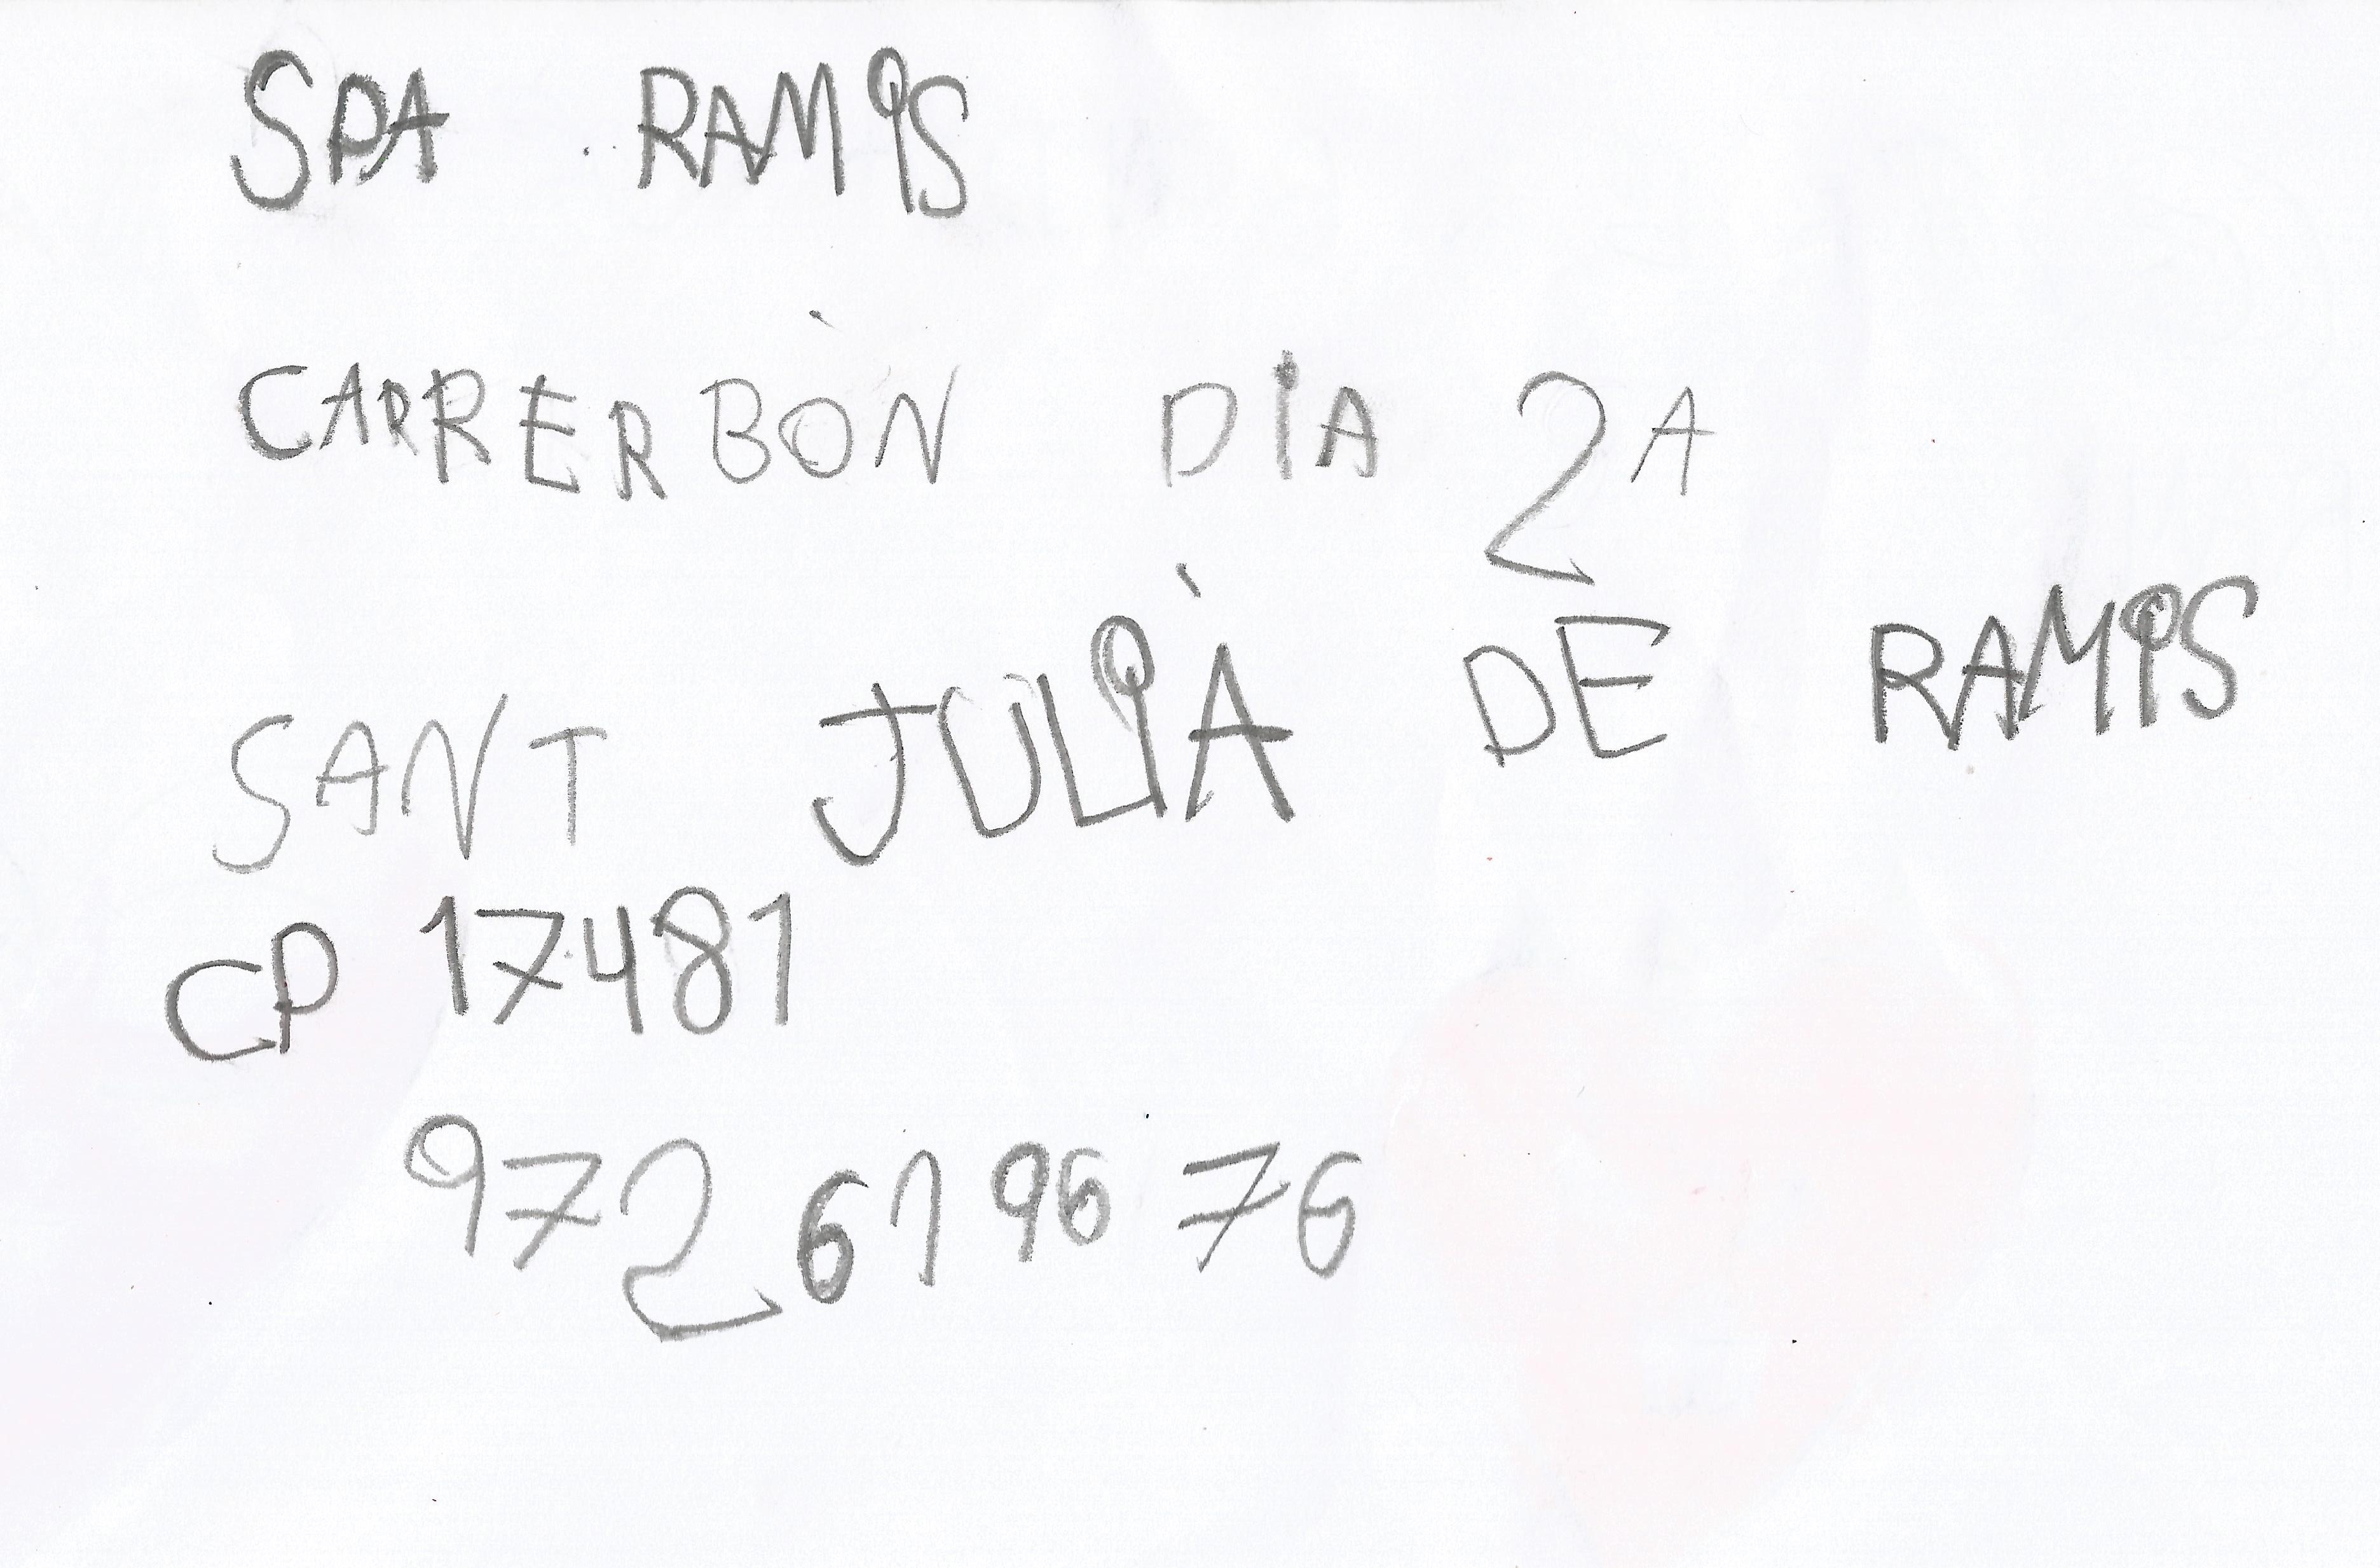 SPA RAMIS
CARRER BÒN DIA 2A
SANT JULIÀ DE RAMIS
CP 17481
972 61 96 76